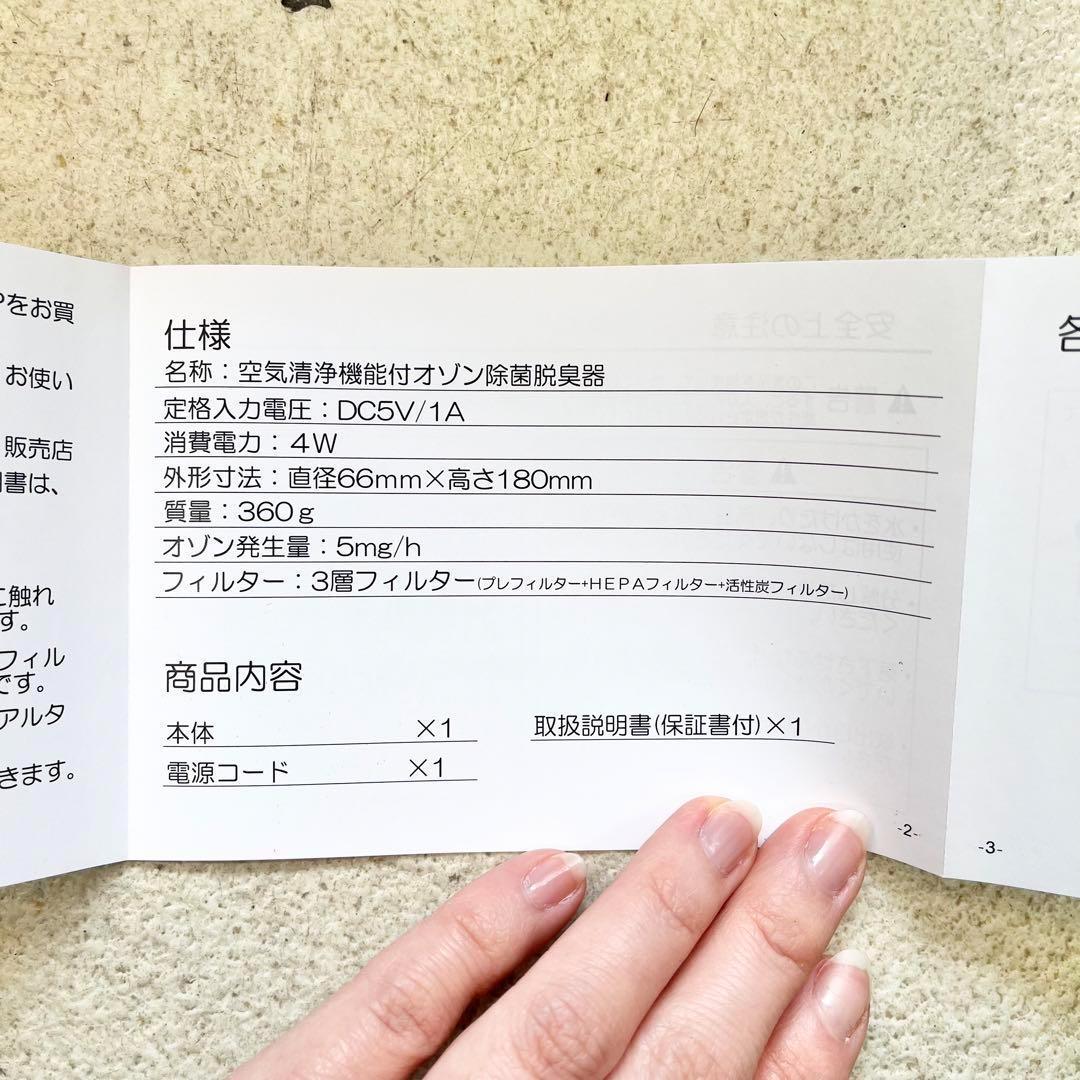 Pをお買
お使い
販売店
明書は、
に触れ
す。
フィル
です。
アルタ
きます。
仕様
名称：空気清浄機能付オゾン除菌脱臭器
定格入力電圧：DC5V/1A
消費電力：４W
外形寸法：直径66mm×高さ180mm
質量：360ｇ
オゾン発生量：5mg/h
フィルター：3層フィルター(プレフィルター+ＨＥＰＡフィルター+活性炭フィルター)
商品内容
本体 ×1
取扱説明書(保証書付)×1
電源コード ×1
-2-
各
-3-